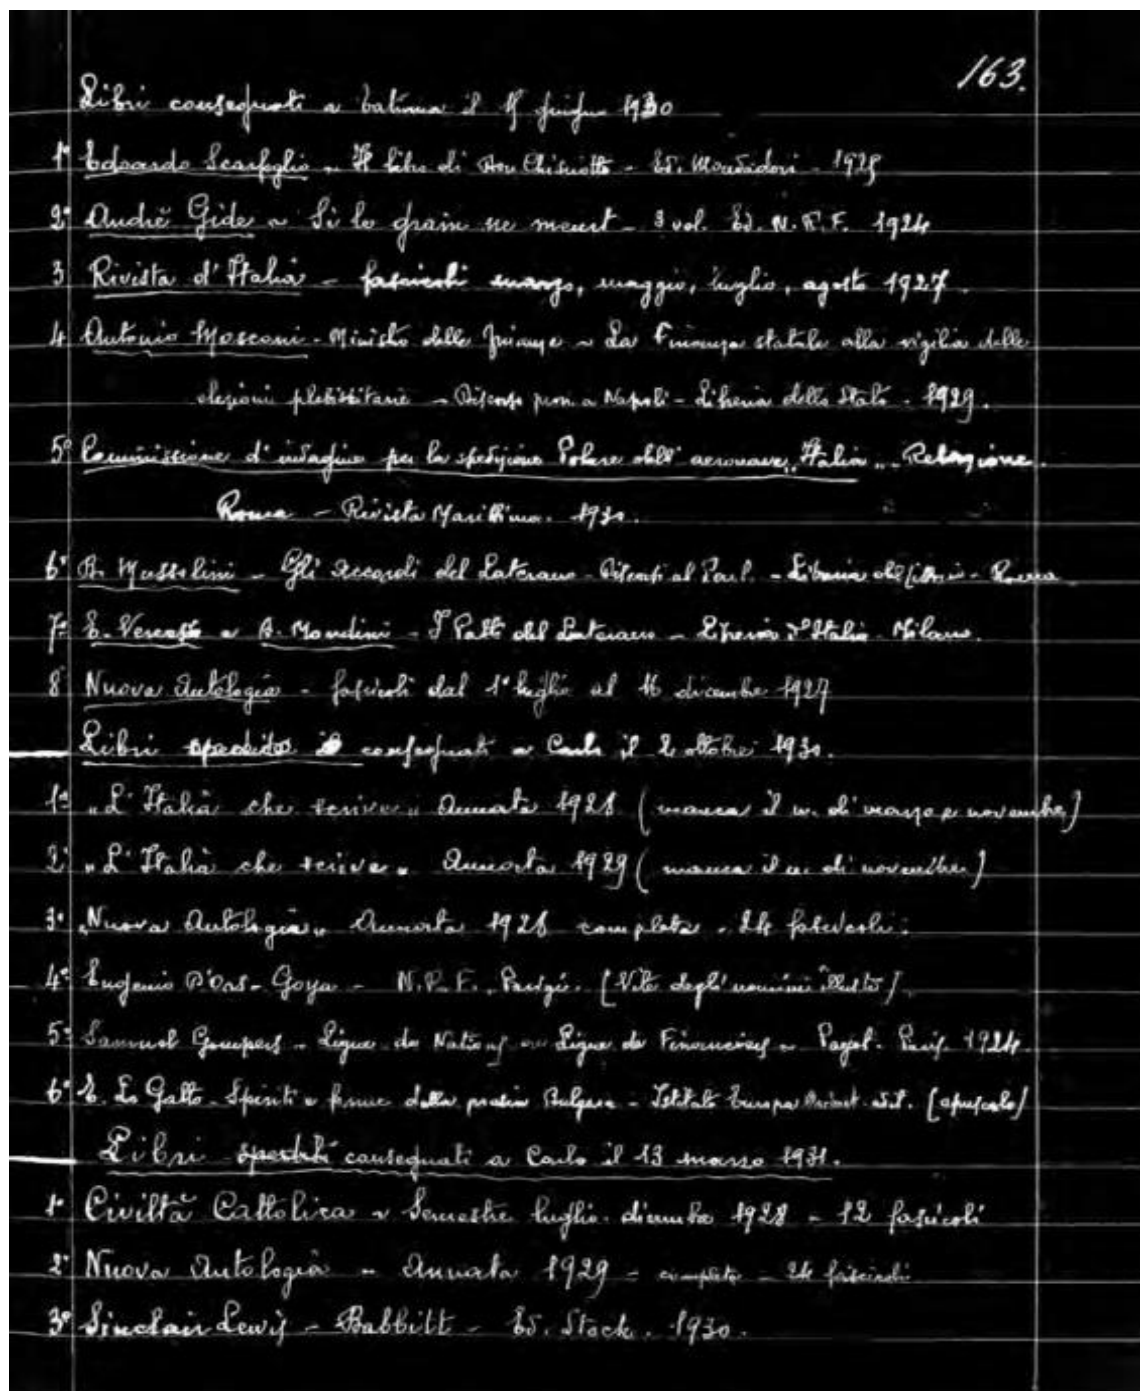 163.
Libri consegnati a Tatiana il giugno 1930
1° Edoardo Scarfoglio - Il libro di Don Chisciotte - Ed. Mondadori - 1925
2° André Gide - Si le grain ne meurt - 3 vol. Ed. N.R.F. 1924
3 Rivista d'Italia - fascicoli marzo, maggio, luglio, agosto 1927.
4 Antonio Mosconi - Ministro delle finanze - La Finanza statale alla vigilia delle
elezioni plebiscitarie - Discorso pron. a Napoli - Libreria dello Stato - 1929.
5° Commissione d'indagine per la spedizione Polare dell'aeronave „Italia„ - Relazione.
Roma - Rivista Marittima. 1930.
6° B. Mussolini - Gli accordi del Laterano - Discorsi al Parl. - Libreria del Littorio - Roma
7° E. e B. Mondini - I Patti del Laterano - Libreria d'Italia - Milano.
8° Nuova Antologia - fascicoli dal 1° luglio al 16 dicembre 1927
Libri spediti il consegnati a Carlo il 2 ottobre 1930.
1° „L'Italia che scrive„ Annata 1928 (manca il n. di marzo e novembre)
2° „L'Italia che scrive„ Annata 1929 (manca il n. di novembre)
3° „Nuova Antologia„ Annata 1928 completa - 24 fascicoli.
4° Eugenio D'Ors - Goya - N.R.F. Parigi. [Vite degli uomini illustri]
5° Samuel Gompers - Ligue de Nations ou Ligue de Financiers - Payot - Paris. 1924.
6° E. Lo Gatto - Spiriti e forme della poesia Bulgara - Istituto Europa Orient. s.d. [opuscolo]
Libri spediti consegnati a Carlo il 13 marzo 1931.
1° Civiltà Cattolica - Semestre luglio-dicembre 1928 - 12 fascicoli
2° Nuova Antologia - Annata 1929 - completa - 24 fascicoli
3° Sinclair Lewis - Babbitt - Ed. Stock. 1930.